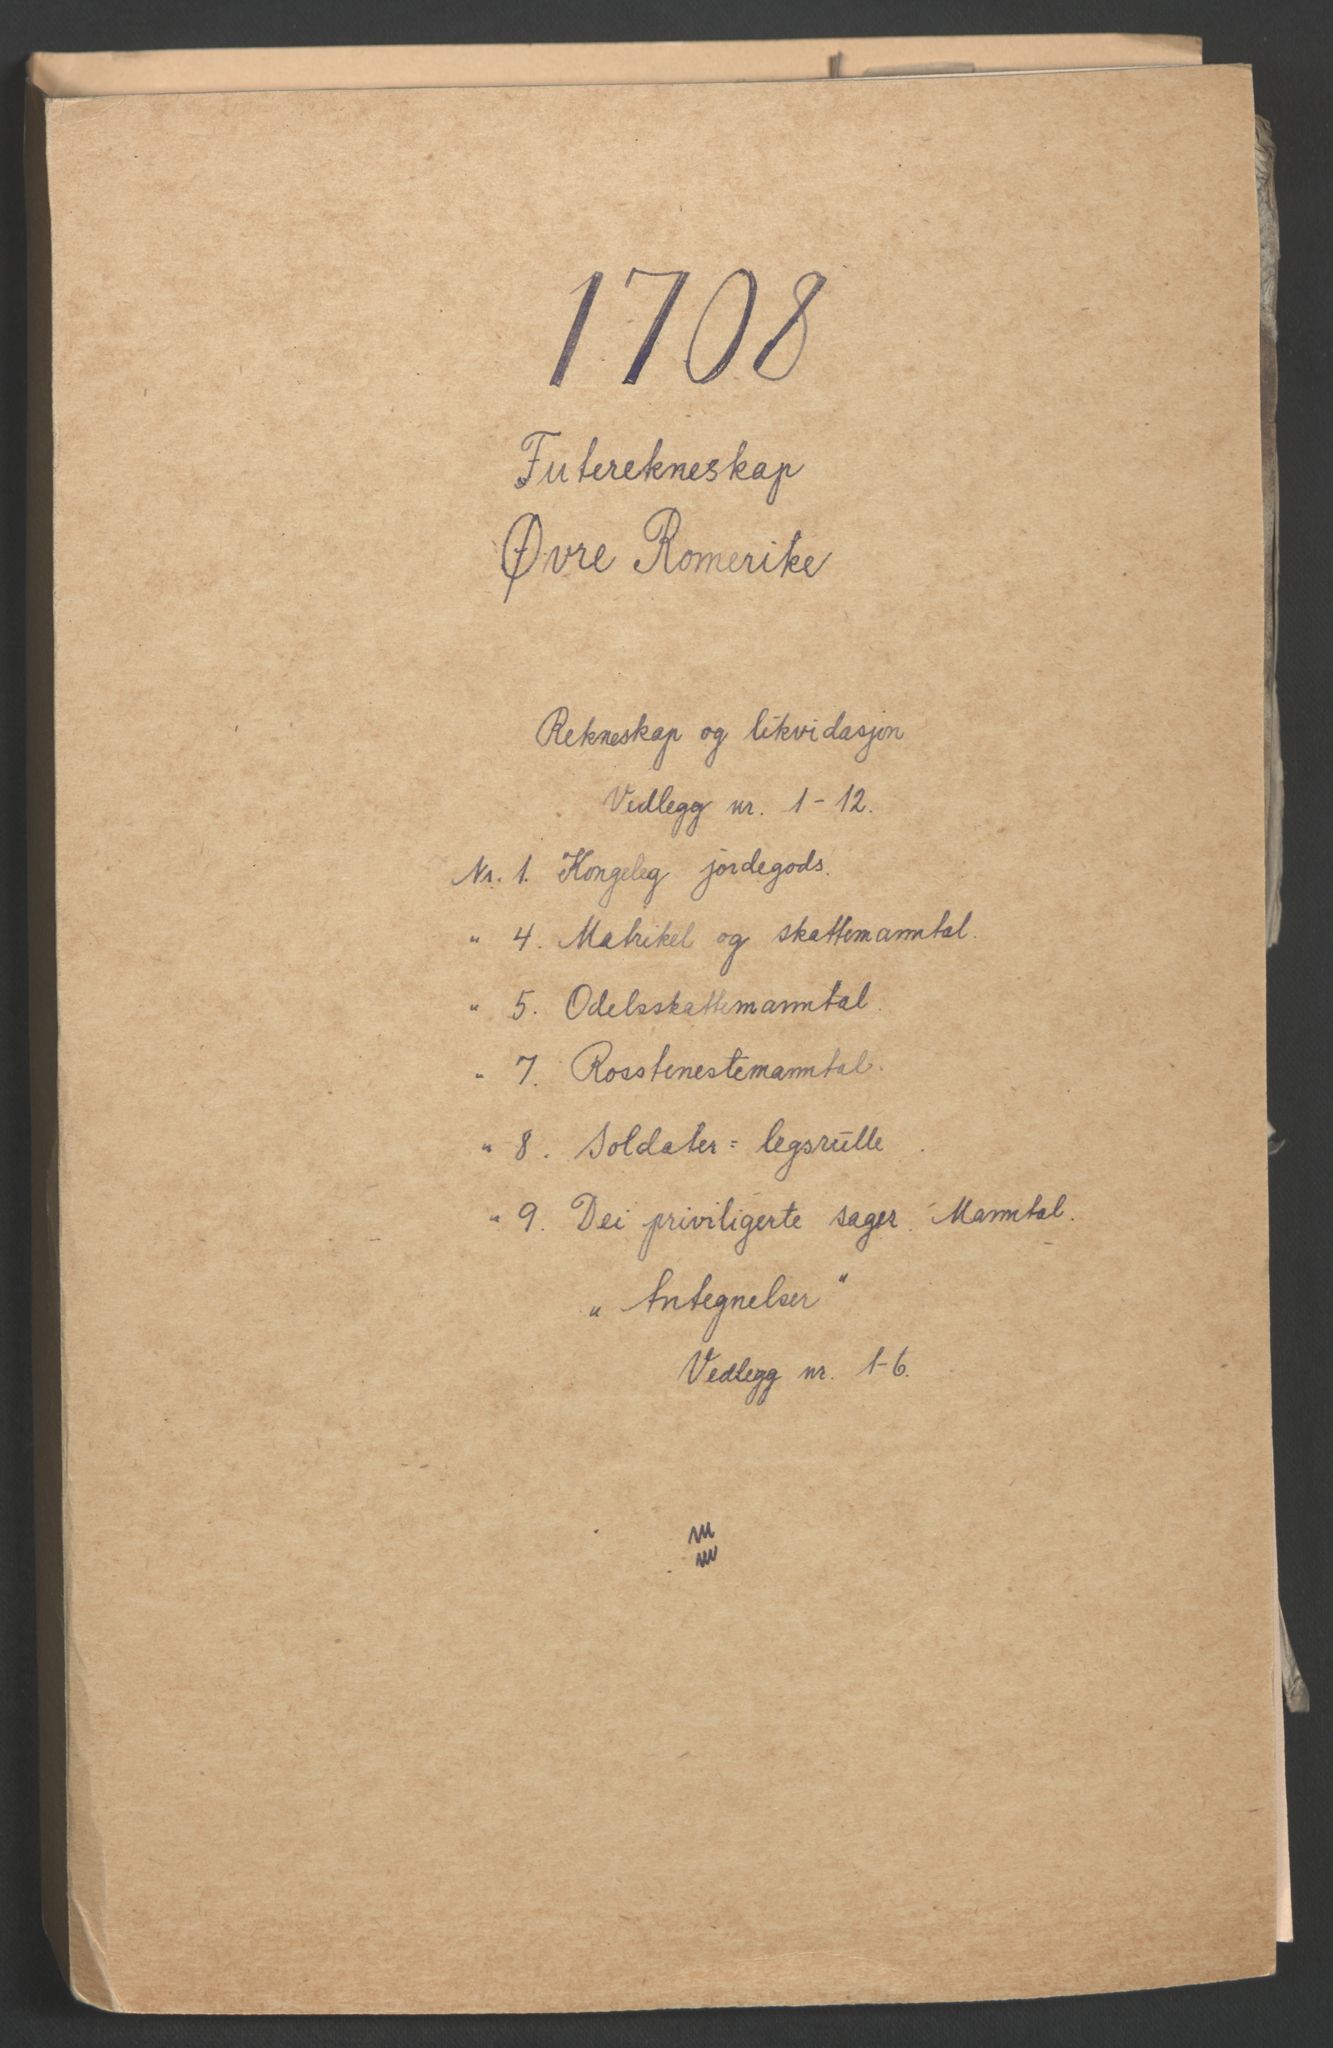 1708
Futerekneskap
Øvre Romerike
Rekneskap og likvidasjon
Vedlegg nr. 1-12.
Nr. 1. Kongeleg jordegods.
" 4. Matrikel og skattemanntal.
" 5. Odelsskattemanntal.
" 7. Rosstenestemanntal.
" 8. Soldater = legsrulle.
" 9. Dei priviligerte sager. Manntal.
„Antegnelser"
Vedlegg nr. 1-6.